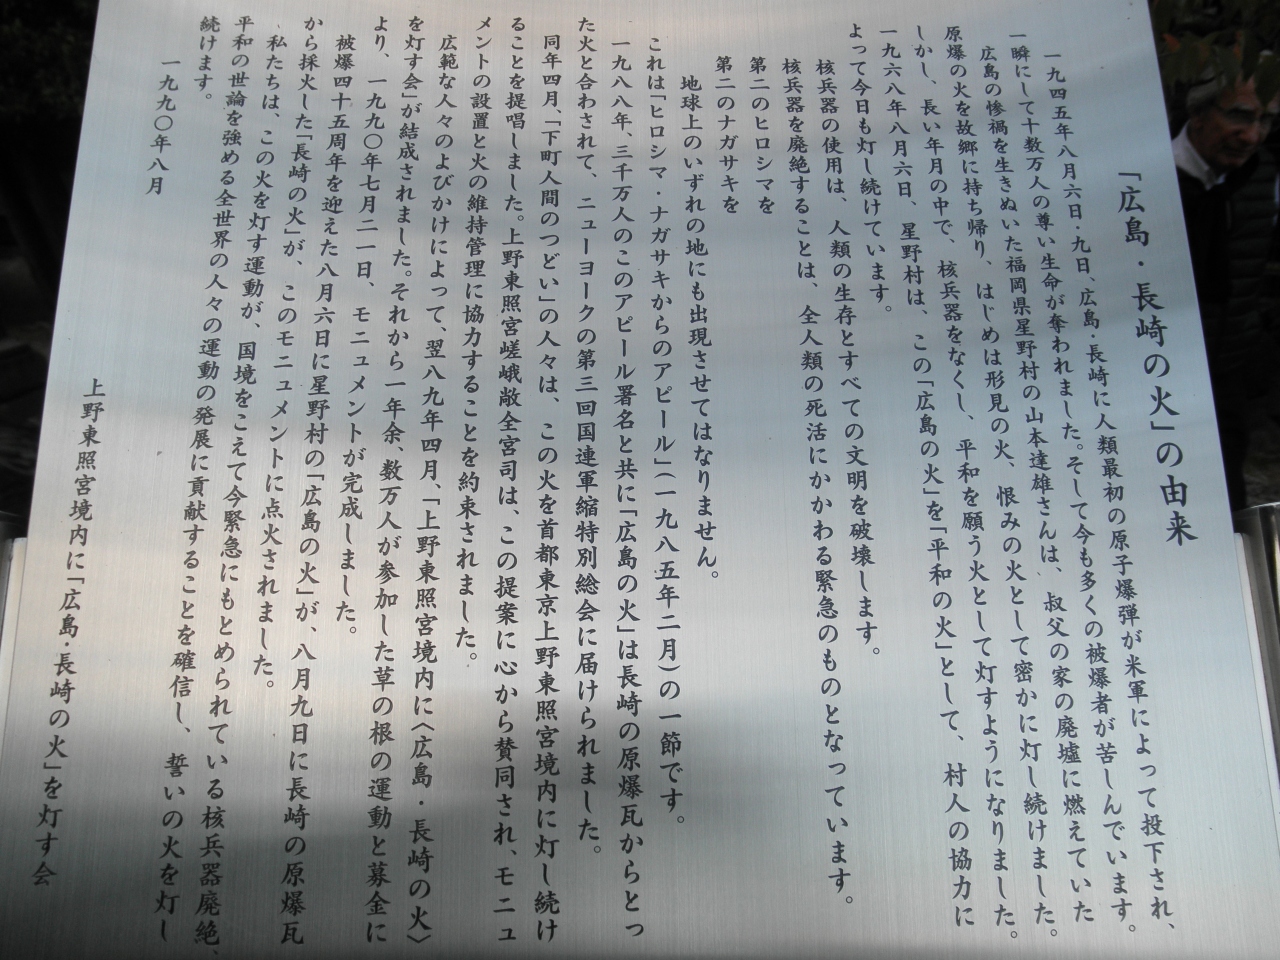 「広島・長崎の火」の由来
一九四五年八月六日・九日、広島・長崎に人類最初の原子爆弾が米軍によって投下され、
一瞬にして十数万人の尊い生命が奪われました。そして今も多くの被爆者が苦しんでいます。
広島の惨禍を生きぬいた福岡県星野村の山本達雄さんは、叔父の家の廃墟に燃えていた
原爆の火を故郷に持ち帰り、はじめは形見の火、恨みの火として密かに灯し続けました。
しかし、長い年月の中で、核兵器をなくし、平和を願う火として灯すようになりました。
一九六八年八月六日、星野村は、この「広島の火」を「平和の火」として、村人の協力に
よって今日も灯し続けています。
核兵器の使用は、人類の生存とすべての文明を破壊します。
核兵器を廃絶することは、全人類の死活にかかわる緊急のものとなっています。
第二のヒロシマを
第二のナガサキを
地球上のいずれの地にも出現させてはなりません。
これは「ヒロシマ・ナガサキからのアピール」(一九八五年二月)の一節です。
一九八八年、三千万人のこのアピール署名と共に「広島の火」は長崎の原爆瓦からとっ
た火と合わされて、ニューヨークの第三回国連軍縮特別総会に届けられました。
同年四月、「下町人間のつどい」の人々は、この火を首都東京上野東照宮境内に灯し続け
ることを提唱しました。上野東照宮嵯峨敞全宮司は、この提案に心から賛同され、モニュ
メントの設置と火の維持管理に協力することを約束されました。
広範な人々のよびかけによって、翌八九年四月、「上野東照宮境内に〈広島・長崎の火〉
を灯す会」が結成されました。それから一年余、数万人が参加した草の根の運動と募金に
より、一九九〇年七月二一日、モニュメントが完成しました。
被爆四十五周年を迎えた八月六日に星野村の「広島の火」が、八月九日に長崎の原爆瓦
から採火した「長崎の火」が、このモニュメントに点火されました。
私たちは、この火を灯す運動が、国境をこえて今緊急にもとめられている核兵器廃絶、
平和の世論を強める全世界の人々の運動の発展に貢献することを確信し、誓いの火を灯し
続けます。
一九九〇年八月
上野東照宮境内に「広島・長崎の火」を灯す会